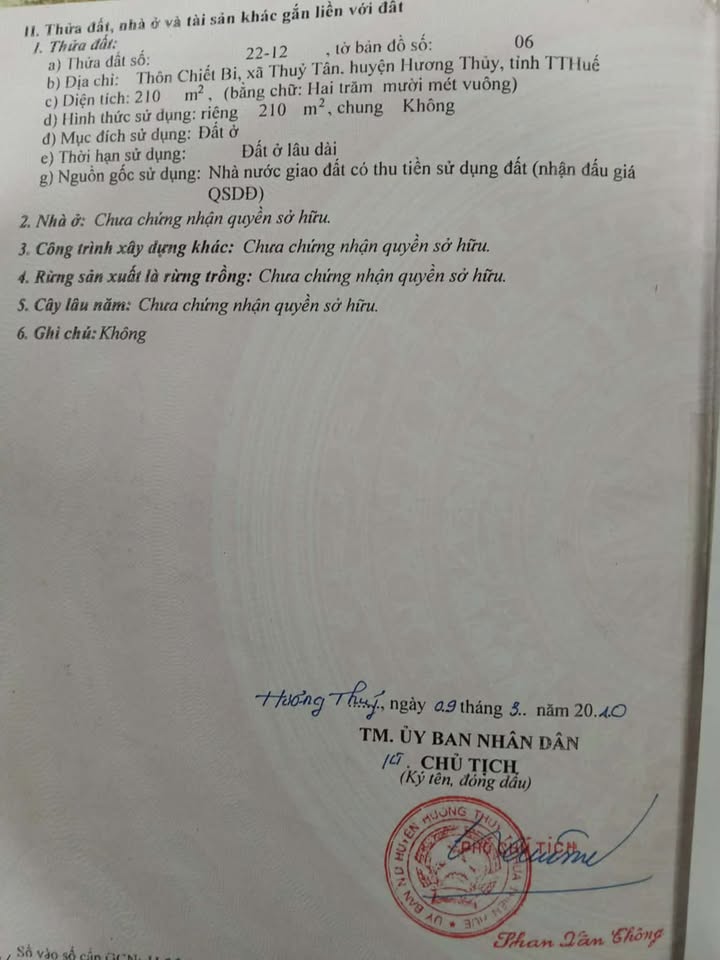 II. Thửa đất, nhà ở và tài sản khác gắn liền với đất
1. Thửa đất:
a) Thửa đất số: 22-12 , tờ bản đồ số: 06
b) Địa chỉ: Thôn Chiết Bi, xã Thuỷ Tân. huyện Hương Thủy, tỉnh TTHuế
c) Diện tích: 210 m², (bằng chữ: Hai trăm mười mét vuông)
d) Hình thức sử dụng: riêng 210 m², chung Không
đ) Mục đích sử dụng: Đất ở
e) Thời hạn sử dụng: Đất ở lâu dài
g) Nguồn gốc sử dụng: Nhà nước giao đất có thu tiền sử dụng đất (nhận đấu giá
QSDĐ)
2. Nhà ở: Chưa chứng nhận quyền sở hữu.
3. Công trình xây dựng khác: Chưa chứng nhận quyền sở hữu.
4. Rừng sản xuất là rừng trồng: Chưa chứng nhận quyền sở hữu.
5. Cây lâu năm: Chưa chứng nhận quyền sở hữu.
6. Ghi chú: Không
Hương Thuỷ, ngày 09 tháng 3.. năm 20.10
TM. ỦY BAN NHÂN DÂN
KT. CHỦ TỊCH
(Ký tên, đóng dấu)
PHÓ CHỦ TỊCH
ỦY BAN ND HUYỆN HƯƠNG THỦY T. THỪA THIÊN HUẾ
Phan Văn Thông
Số vào sổ cấp GCN: